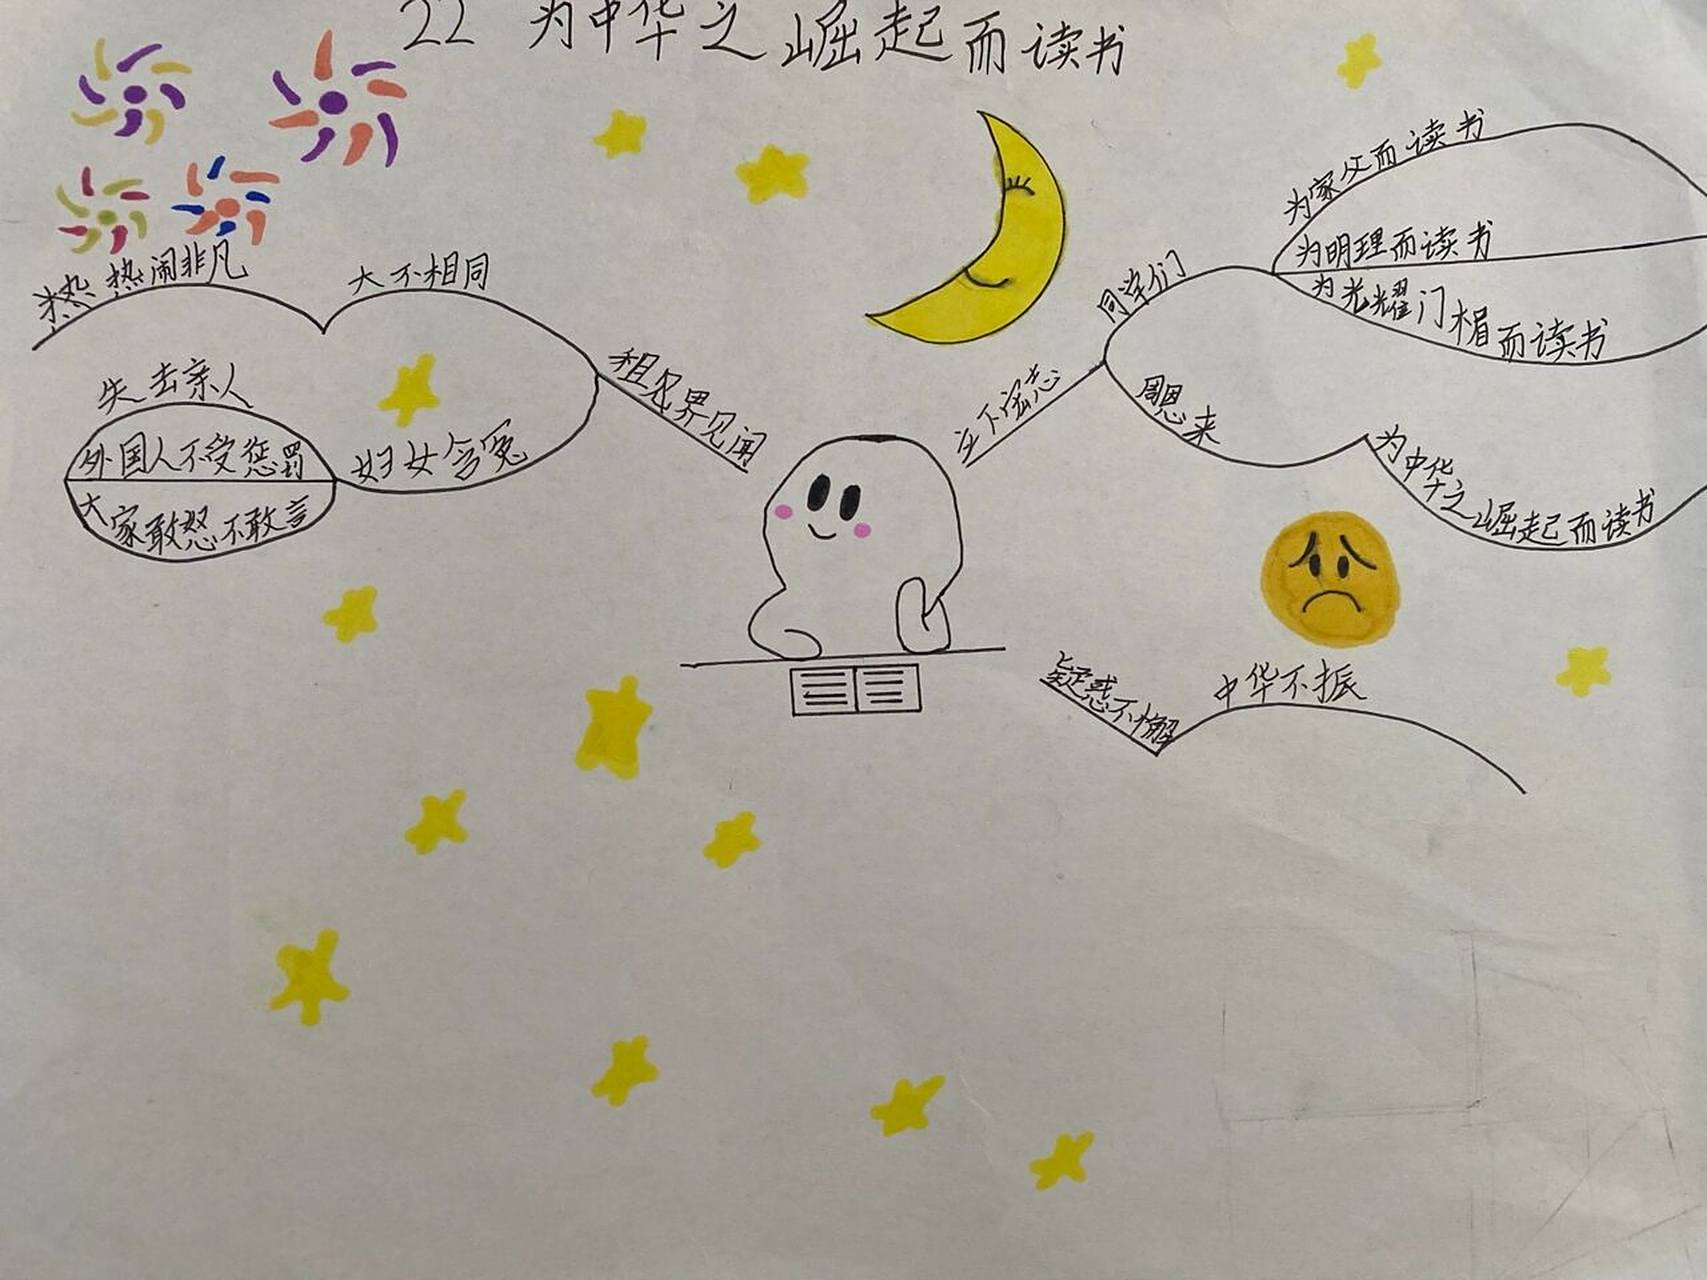 22 为中华之崛起而读书
热热闹非凡
大不相同
租见界见闻
失去亲人
外国人不受惩罚
大家敢怒不敢言
妇女含冤
立下宏志
同学们
为家父而读书
为明理而读书
为光耀门楣而读书
周恩来
为中华之崛起而读书
疑惑不解
中华不振